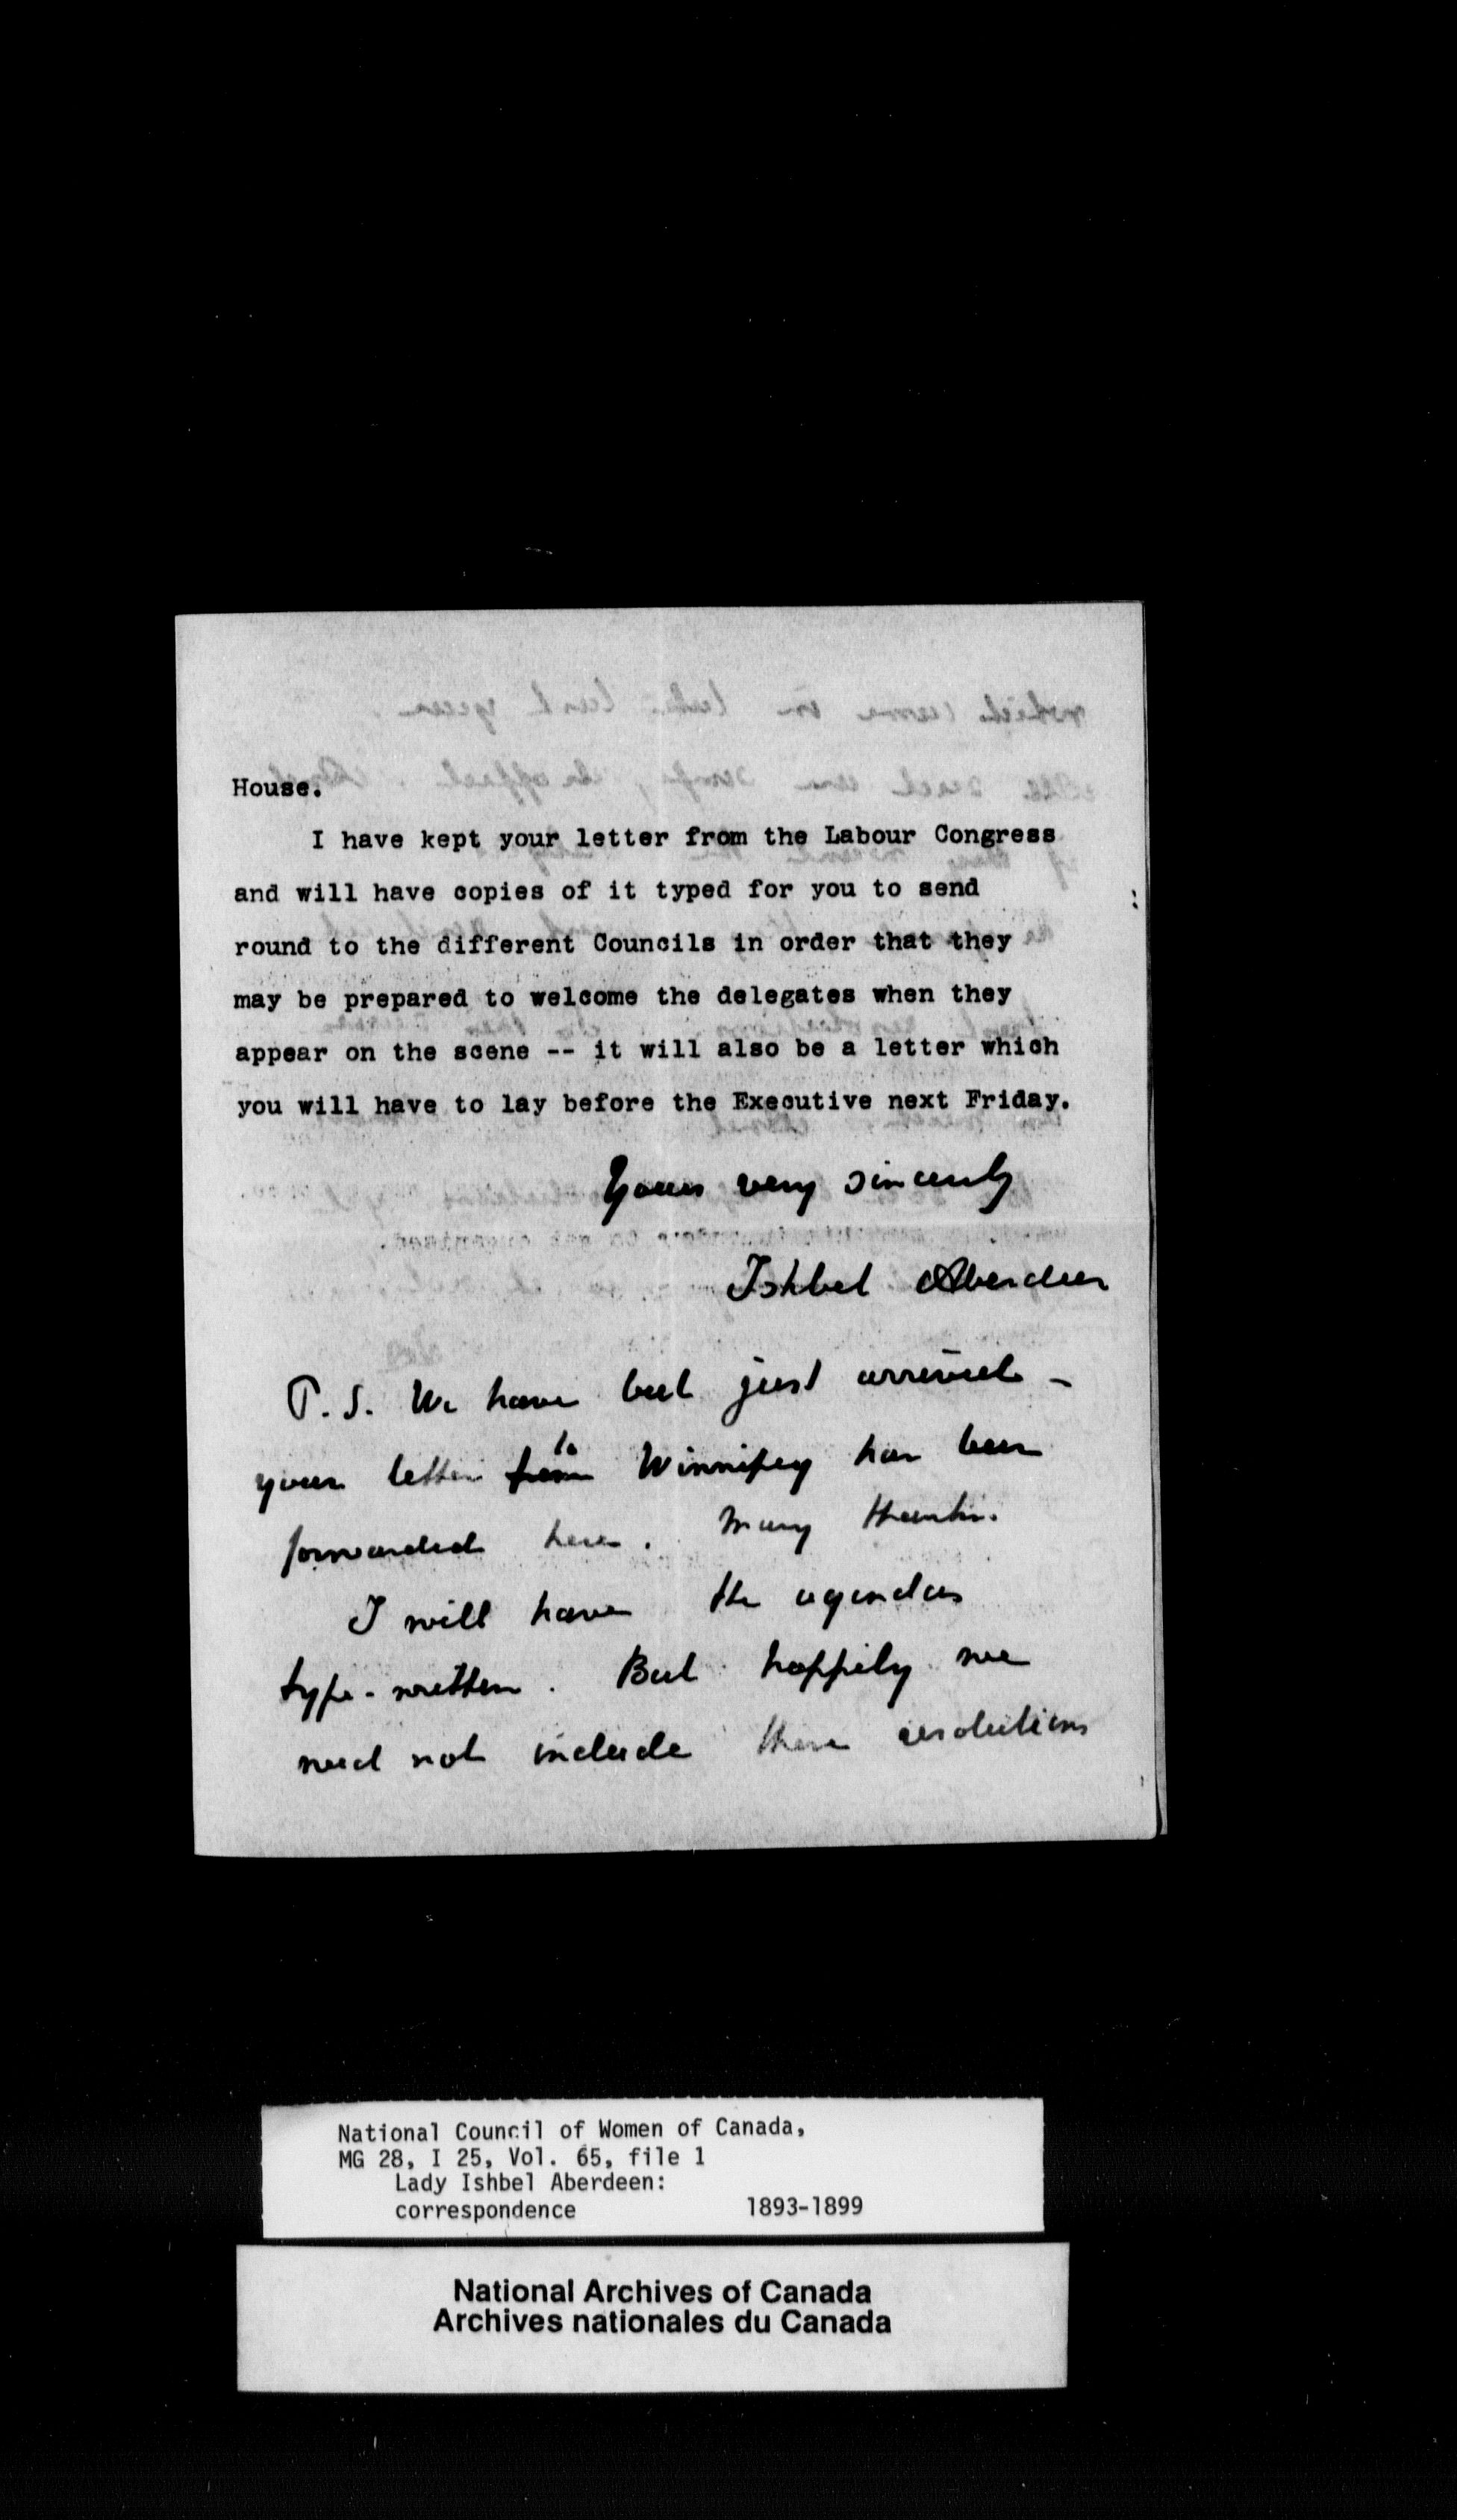 House.
I have kept your letter from the Labour Congress
and will have copies of it typed for you to send
round to the different Councils in order that they
may be prepared to welcome the delegates when they
appear on the scene -- it will also be a letter which
you will have to lay before the Executive next Friday.
Yours very sincerely
Ishbel Aberdeen
P.S. We have but just arrived -
your letter from to Winnipeg has been
forwarded here. Many thanks.
I will have the agendas
type-written. But happily we
need not include those resolutions
National Council of Women of Canada,
MG 28, I 25, Vol. 65, file 1
Lady Ishbel Aberdeen:
correspondence 1893-1899
National Archives of Canada
Archives nationales du Canada